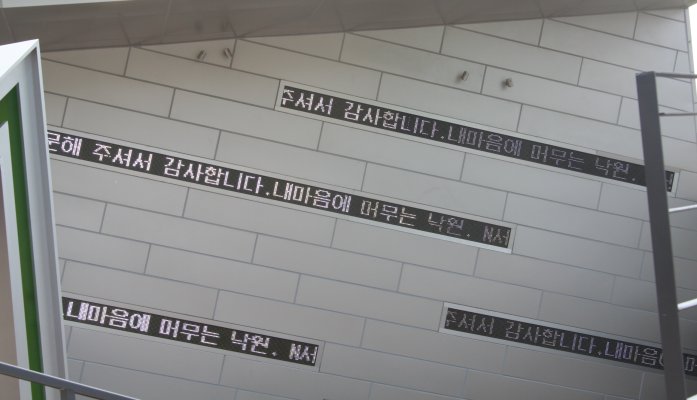 주셔서 감사합니다.내마음에 머무는 낙원.
문해 주셔서 감사합니다.내마음에 머무는 낙원. N서
내마음에 머무는 낙원. N서
주셔서 감사합니다.내마음에 머